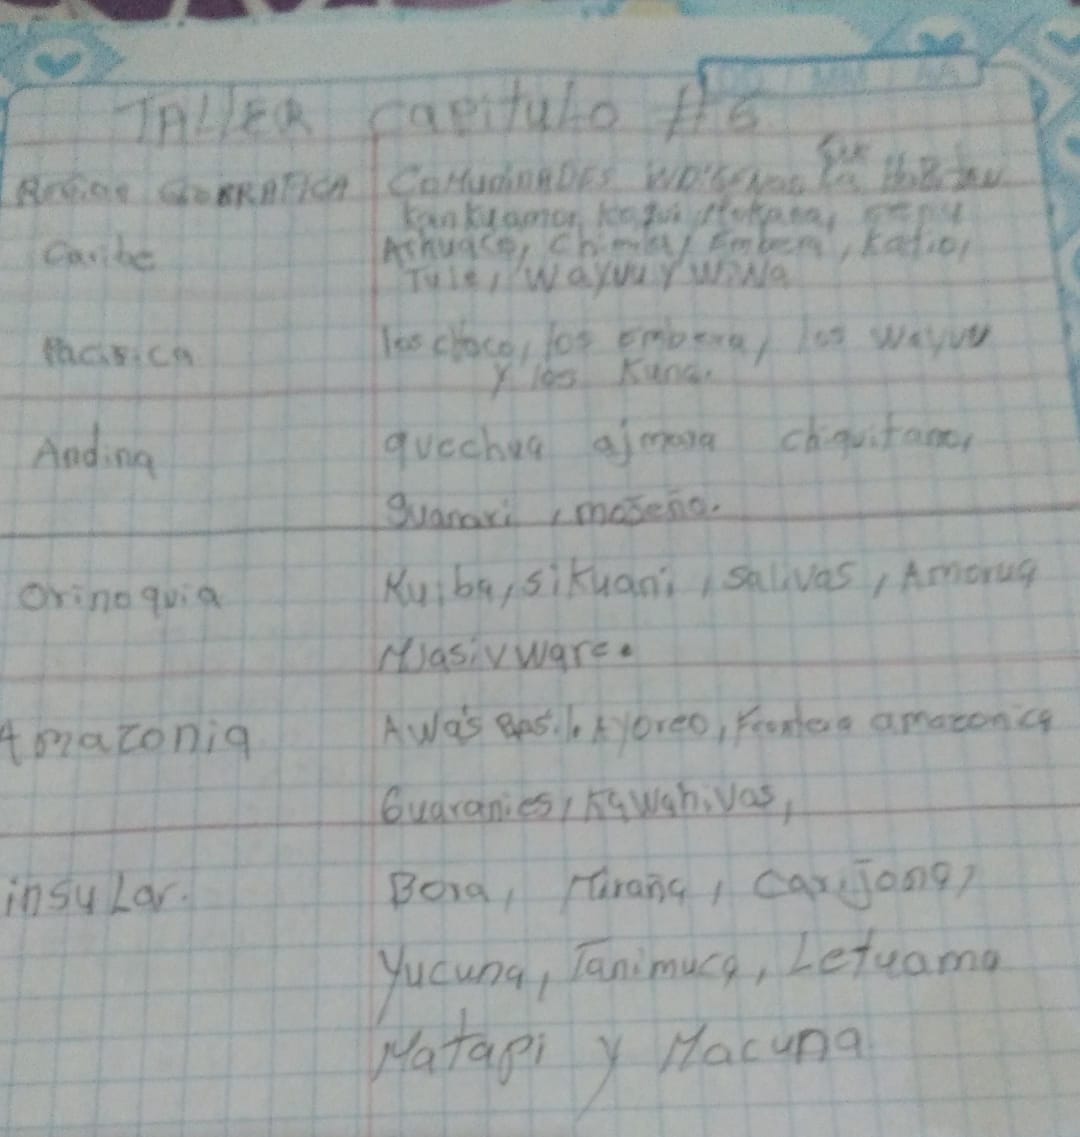 TALLER capitulo #6
Región GEOGRAFICA
COMUNIDADES INDIGENAS Que la Habitan
Caribe
Kankuamo, Kogui, Mokana, senu
Arhuaco, Chimila, Embera, Katio,
Tule, Wayuu y WiWa
Pacifica
los choco, los embera, los wayuu
y los Kuna.
Andina
quechua aimara chiquitano,
guarani, moseño.
Orinoquia
Kuiba, sikuani, salivas, Amorua
Masivware.
Amazonia
Awa's Bras. Ayoreo, Frontera amazonica
Guaranies, Kawahivas,
insuLar.
Bora, Miraña, Carijona,
Yucuna, Tanimuca, Letuama
Matapi y Macuna